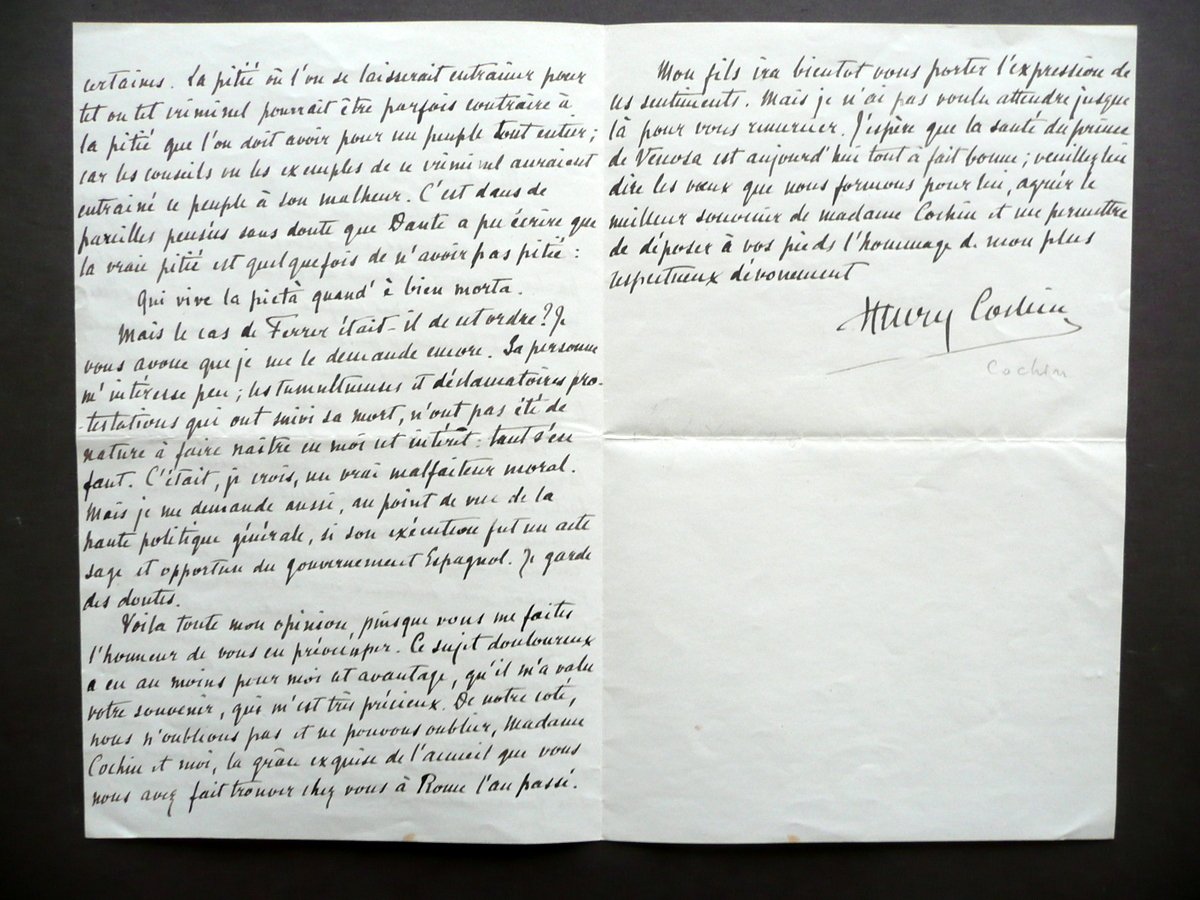 certaines. La pitié où l'on se laisserait entrainer pour
tel ou tel criminel pourrait être parfois contraire à
la pitié que l'on doit avoir pour un peuple tout entier;
car les conseils ou les exemples de ce criminel auraient
entrainé ce peuple à son malheur. C'est dans de
pareilles pensées sans doute que Dante a pu écrire que
la vraie pitié est quelquefois de n'avoir pas pitié :
Qui vive la pietà quand' è bien morta.
Mais le cas de Ferrer était-il de cet ordre? Je
vous avoue que je me le demande encore. Sa personne
m'intéresse peu; les tumultueuses et déclamatoires pro-
-testations qui ont suivi sa mort, n'ont pas été de
nature à faire naître en moi cet intérêt: tant s'en
faut. C'était, je crois, un vrai malfaiteur moral.
Mais je me demande aussi, au point de vue de la
haute politique générale, si son exécution fut un acte
sage et opportun du gouvernement Espagnol. Je garde
des doutes.
Voila toute mon opinion, puisque vous me faites
l'honneur de vous en préoccuper. Ce sujet douloureux
a eu au moins pour moi cet avantage, qu'il m'a valu
votre souvenir, qui m'est très précieux. De notre coté,
nous n'oublions pas et ne pouvons oublier, Madame
Cochin et moi, la grâce exquise de l'accueil que vous
nous avez fait trouver chez vous à Rome l'an passé.
Mon fils ira bientot vous porter l'expression de
ces sentiments. Mais je n'ai pas voulu attendre jusque
là pour vous remercier. J'espère que la santé du prince
de Venosa est aujourd'hui tout à fait bonne; veuillez lui
dire les vœux que nous formons pour lui, agréer le
meilleur souvenir de madame Cochin et me permettre
de déposer à vos pieds l'hommage de mon plus
respectueux dévouement
Henry Cochin
Cochin